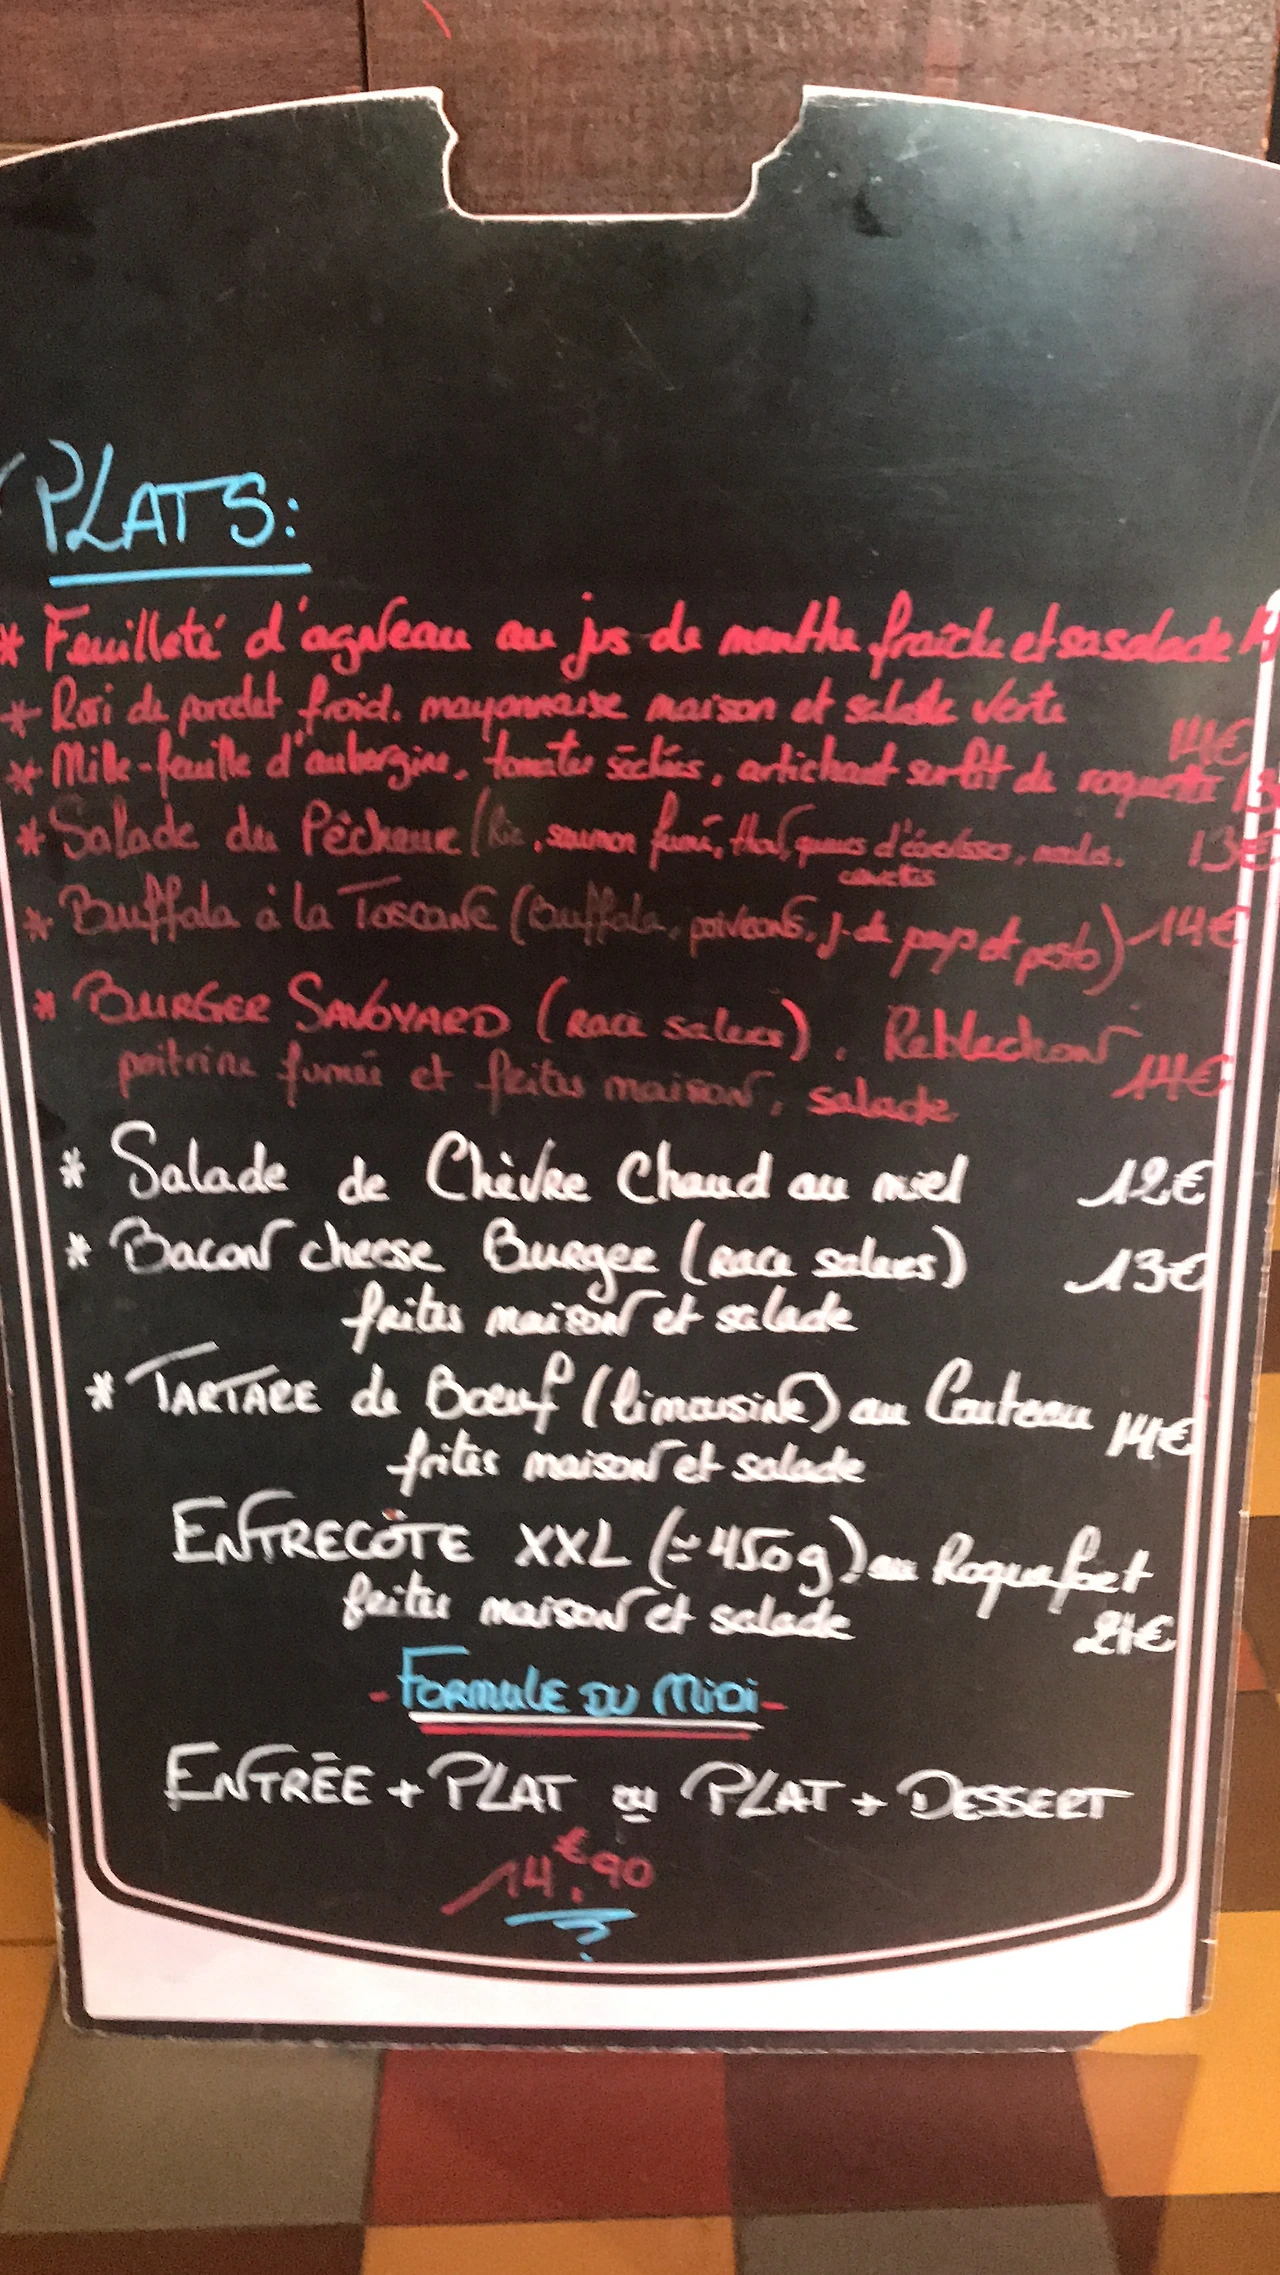 PLATS:
* Feuilleté d'agneau au jus de menthe fraîche et sa salade
* Roti de porcelet froid. mayonnaise maison et salade verte
14€
* Mille-feuille d'aubergine, tomates séchées, artichaut sur lit de roquette 13
* Salade du Pêcheur (Riz, saumon fumé, thon, queues d'écrevisses, moules. 13€
crevettes
* Buffala à la Toscane (Buffala, poivrons, j. de pays et pesto) 14€
* BURGER SAVOYARD (race salers), Reblochon
poitrine fumée et frites maison, salade 14€
* Salade de Chèvre Chaud au miel 12€
* Bacon cheese Burger (race salers) 13€
frites maison et salade
* TARTARE de Bœuf (limousine) au Couteau 14€
frites maison et salade
ENTRECÔTE XXL (≃450g) au Roquefort
frites maison et salade 21€
- FORMULE DU MIDI -
ENTRÉE + PLAT ou PLAT + DESSERT
14,€90